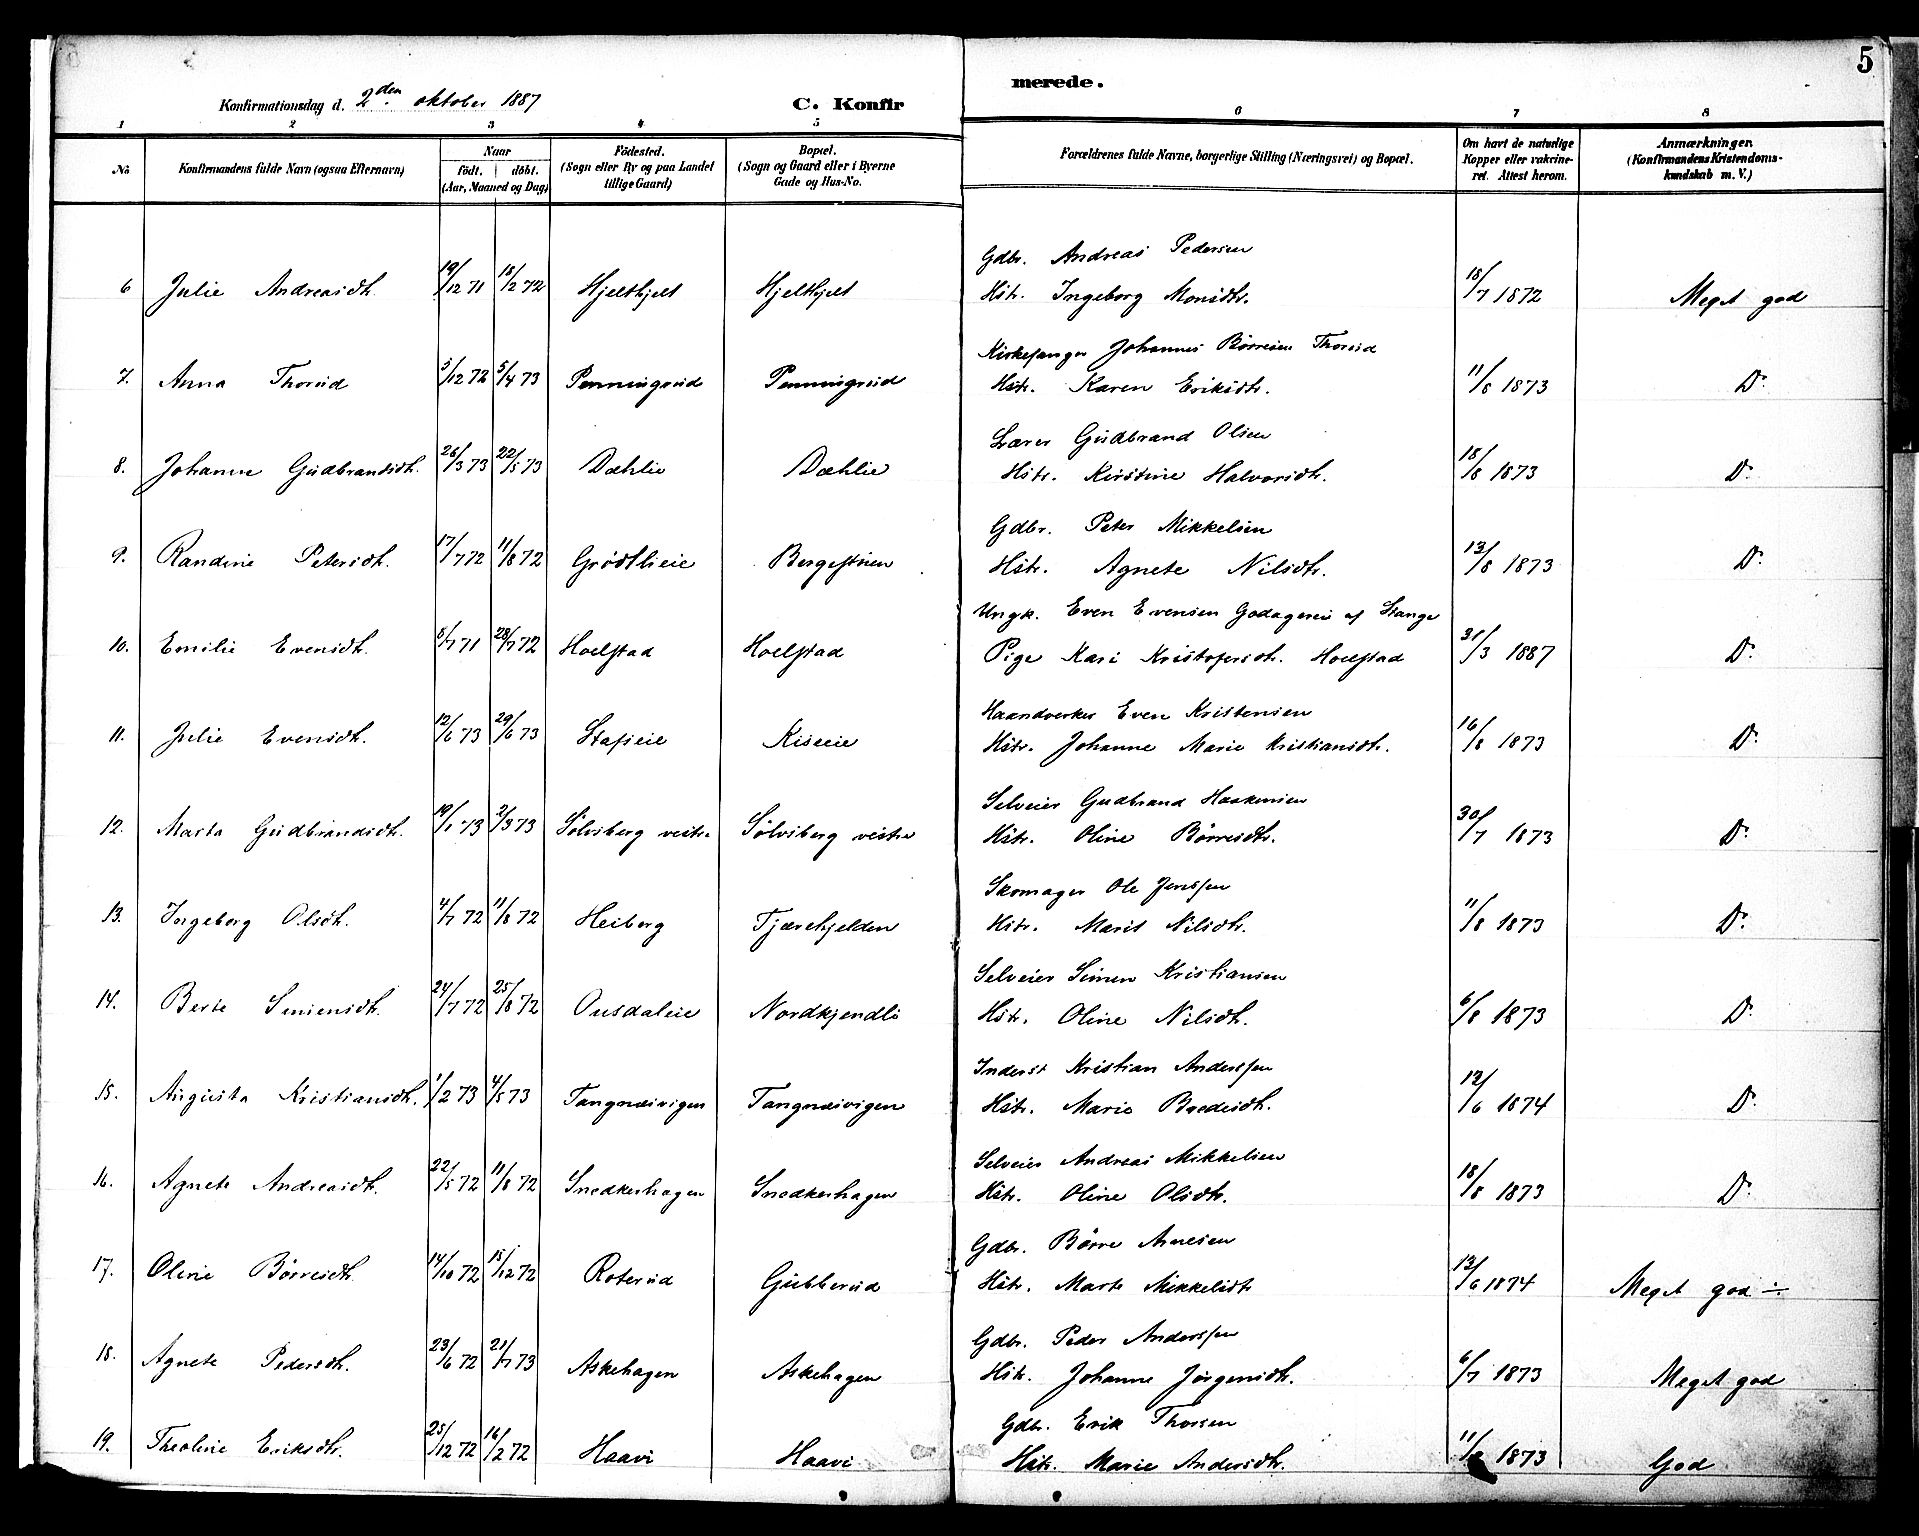 5
Konfirmationsdag d. 2den oktober 1887 C. Konfirmerede.
1 2 3 4 5 6 7 8
No Konfirmandens fulde Navn (ogsaa Efternavn) Naar født. døbt. (Aar, Maaned og Dag) Fødested. (Sogn eller By og paa Landet tillige Gaard) Bopæl. (Sogn og Gaard eller i Byerne Gade og Hus-No. Forældrenes fulde Navne, borgerlige Stilling (Næringsvei) og Bopæl. Om havt de naturlige Kopper eller vakcineret. Attest herom. Anmærkninger. (Konfirmandens Kristendomskundskab m. V.)
Gdbr. Andreas Pedersen
6 Julie Andreasdt. 19/12 71 18/2 72 Hjelthjelt Hjelthjelt Hstr. Ingeborg Monsdtr. 18/7 1872 Meget god
Kirkesanger Johannes Børresen Thorud
7. Anna Thorud 5/12 72 5/4 73 Penningrud Penningrud Hstr. Karen Eriksdtr. 11/8 1873 Do
Lærer Gudbrand Olsen
8. Johanne Gudbrandsdt. 26/3 73 22/5 73 Dæhlie Dæhlie Hstr. Kirstine Halvorsdtr. 18/8 1873 Do
Gdbr. Peter Mikkelsen
9. Randine Petersdt. 17/7 72 11/8 72 Grødtlieie Bergestuen Hstr. Agnete Nilsdtr. 13/8 1873 Do
Ungk. Even Evensen Godagereie af Stange
10. Emilie Evensdt. 8/7 71 28/7 72 Hoelstad Hoelstad Pige Kari Kristofersdt. Hoelstad 31/3 1887 Do
Haandverker Even Kristensen
11. Julie Evensdt. 12/6 73 29/6 73 Stafsieie Kiseie Hstr. Johanne Marie Kristiansdtr. 16/8 1873 Do
Selveier Gudbrand Haakensen
12. Marta Gudbrandsdt. 19/1 73 2/3 73 Sølvsberg vestre Sølvsberg vestre Hstr. Oline Børresdtr. 30/7 1873 Do
Skomager Ole Jenssen
13. Ingeborg Olsdt. 4/7 72 11/8 72 Heiberg Tjærekjelden Hstr. Marit Nilsdtr. 11/8 1873 Do
Selveier Simen Kristiansen
14. Berte Simensdt. 24/7 72 25/8 72 Ousdaleie Nordkjendli Hstr. Oline Nilsdtr. 6/8 1873 Do
Inderst Kristian Anderssen
15. Augusta Kristiansdt. 1/2 73 4/5 73 Tangnæsvigen Tangnæsvigen Hstr. Marie Bredesdt. 12/6 1874 Do
Selveier Andreas Mikkelsen
16. Agnete Andreasdt. 22/5 72 11/8 72 Snedkerhagen Snedkerhagen Hstr. Oline Olsdtr. 18/8 1873 Do
Gdbr. Børre Arnesen
17. Oline Børresdt. 14/10 72 15/12 72 Roterud Gubberud Hstr. Marte Mikkelsdtr 12/6 1874 Meget god ÷
Gdbr. Peder Anderssen
18. Agnete Pedersdt. 23/6 72 21/7 73 Askehagen Askehagen Hstr. Johanne Jørgensdt. 6/7 1873 Meget god
Gdbr. Erik Thorsen
19. Theoline Eriksdtr. 25/12 72 16/2 72 Haavi Haavi Hstr. Marie Andersdtr. 11/8 1873 God